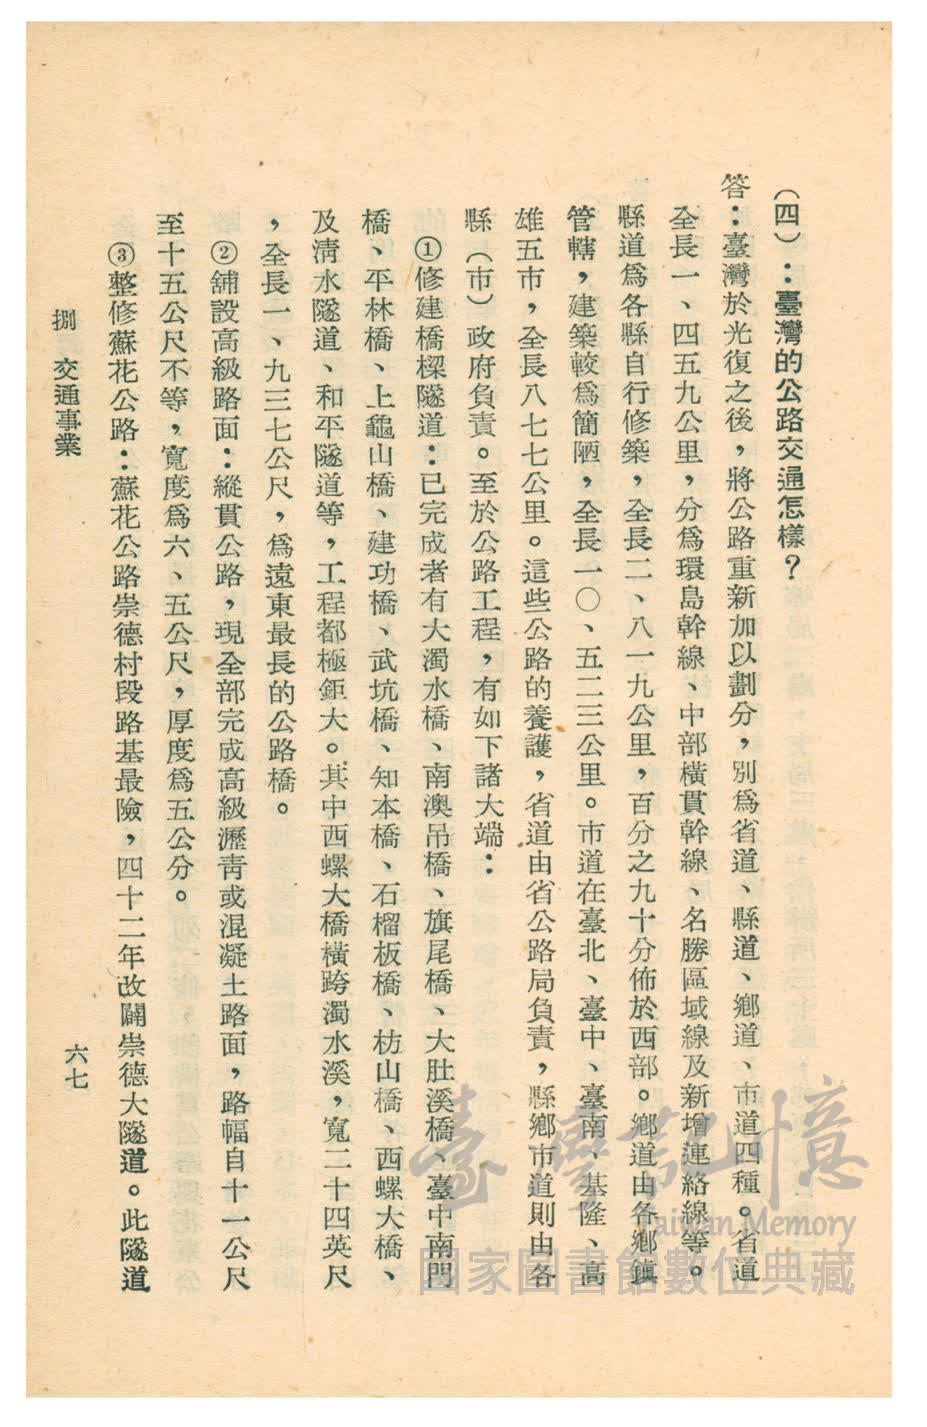 (四)：臺灣的公路交通怎樣？
答：臺灣於光復之後，將公路重新加以劃分，別為省道、縣道、鄉道、市道四種。省道
全長一、四五九公里，分為環島幹線、中部橫貫幹線、名勝區域線及新增連絡線等。
縣道為各縣自行修築，全長二、八一九公里，百分之九十分佈於西部。鄉道由各鄉鎮
管轄，建築較為簡陋，全長一〇、五二三公里。市道在臺北、臺中、臺南、基隆、高
雄五市，全長八七七公里。這些公路的養護，省道由省公路局負責，縣鄉市道則由各
縣(市)政府負責。至於公路工程，有如下諸大端：
①修建橋樑隧道：已完成者有大濁水橋、南澳吊橋、旗尾橋、大肚溪橋、臺中南門
橋、平林橋、上龜山橋、建功橋、武坑橋、知本橋、石榴板橋、枋山橋、西螺大橋、
及清水隧道、和平隧道等，工程都極鉅大。其中西螺大橋橫跨濁水溪，寬二十四英尺
，全長一、九三七公尺，為遠東最長的公路橋。
②舖設高級路面：縱貫公路，現全部完成高級瀝青或混凝土路面，路幅自十一公尺
至十五公尺不等，寬度為六、五公尺，厚度為五公分。
③整修蘇花公路：蘇花公路崇德村段路基最險，四十二年改闢崇德大隧道。此隧道
捌 交通事業
六七
臺灣記憶
Taiwan Memory
國家圖書館數位典藏